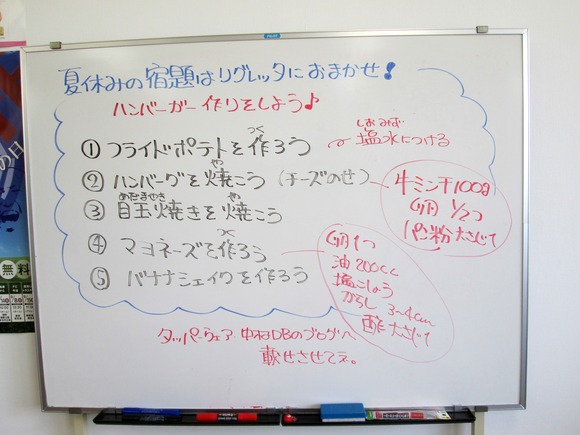 夏休みの宿題はリグレッタにおまかせ!
ハンバーガー作りをしよう♪
① フライドポテトを作ろう
つく
しおみず
塩水につける
② ハンバーグを焼こう (チーズのせ)
や
牛ミンチ100g
卵 1/2コ
パン粉 大さじ1
③ 目玉焼きを焼こう
めだまやき や
④ マヨネーズを作ろう
つく
卵1つ
油 200cc
塩こしょう
からし 3~4cm
酢 大さじ1
⑤ バナナシェイクを作ろう
タッパーウェア 中村DBのブログへ
載せさせてネ。
の日
無料
PILOT